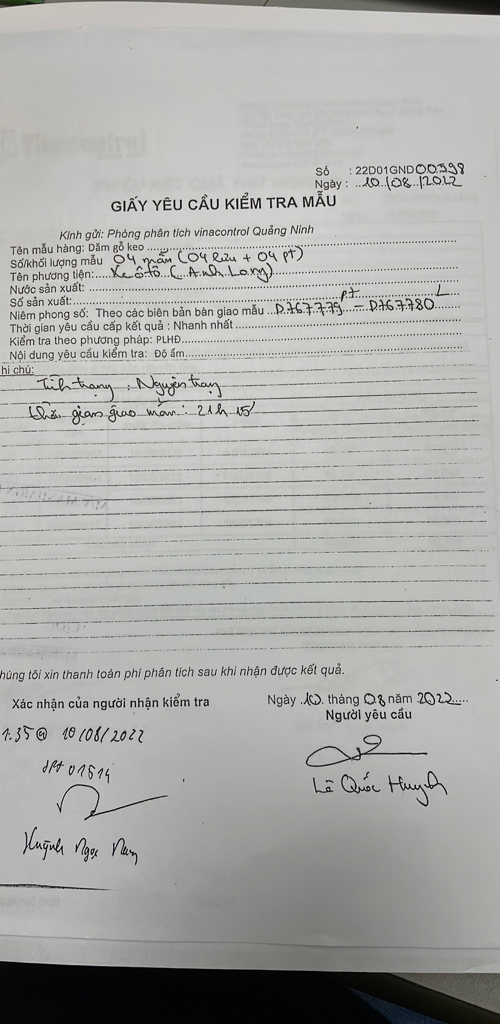 Số : 22D01GND00598
Ngày : 10/08/2022
GIẤY YÊU CẦU KIỂM TRA MẪU
Kính gửi: Phòng phân tích vinacontrol Quảng Ninh
Tên mẫu hàng: Dăm gỗ keo
Số/khối lượng mẫu 04 mẫu (04 lưu + 04 pt)
Tên phương tiện: Xe ôtô (Anh Long)
Nước sản xuất:
Số sản xuất:
Niêm phong số: Theo các biên bản bàn giao mẫu D.767.779 pt - D.767.780 L
Thời gian yêu cầu cấp kết quả : Nhanh nhất
Kiểm tra theo phương pháp: PLHĐ
Nội dung yêu cầu kiểm tra: Độ ẩm
hi chú:
Tình trạng : Nguyên trạng
thời gian giao mẫu : 21h 15'
húng tôi xin thanh toán phí phân tích sau khi nhận được kết quả.
Xác nhận của người nhận kiểm tra
Ngày 10 tháng 08 năm 2022
Người yêu cầu
1:35 @ 10/08/2022
01514
Lê Quốc Huynh
Huỳnh Ngọc Nam